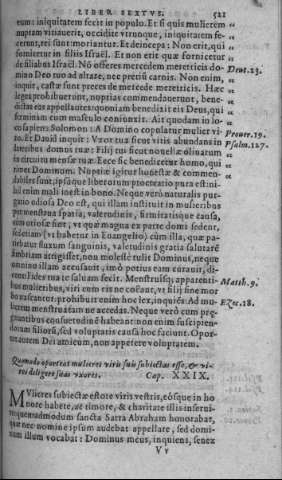 LIBER SEXTVS. 521
eum: iniquitatem fecit in populo. Et si quis mulierem
nuptam vitiauerit, occidite vtrunque, in iniquitatem fe-
cerunt, rei sunt: moriantur. Et deinceps: Non erit, qui
fornicetur in filiis Israël. Et non erit quæ fornicetur
de filiabus Israël. Nō offeres mercedem meretricis do- Deut. 23.
mino Deo tuo ad altare, nec precium canis. Non enim,
inquit, castæ sunt preces de mercede meretricis. Hæc
leges prohibuerunt, nuptias commendauerunt, bene-
dictas eos appellantes: quoniam benedixit eis Deus, qui
fœminam cum masculo coniunxit. Ait quodam in lo-
co sapiens Solomon: A Domino copulatur mulier vi- Prouer. 19.
ro. Et Dauid inquit: Vxor tua sicut vitis abundans in Psalm. 127.
lateribus domus tuæ: Filij tui sicut nouellæ oliuarum
in circuitu mensæ tuæ. Ecce sic benedicetur homo, qui
timet Dominum. Nuptiæ igitur honestæ &
dabiles sunt, ipsáque liberorum procreatio pura est: ni-
hil enim mali inest in bono. Neque verò naturalis pur-
gatio odiosa Deo est, qui illam instituit in mulieribus
per menstrua spatia, valetudinis, firmitatisque causa,
cùm otiosæ sint, vt quæ magna ex parte domi sedent,
sed etiam (vt habetur in Euangelio) cùm illa, quæ pa-
tiebatur fluxum sanguinis, valetudinis gratia salutarē
fimbriam attigisset, non molestè tulit Dominus, neque
omnino illam accusauit, imò potius eam curauit, di-
cens: Fides tua te saluam fecit. Menstruisq; apparenti- Matth. 9.
bus mulieribus, viri cum eis ne coëant, vt filij sine mor
bo nascantur: prohibuit enim hoc lex, inquiēs: Ad mu- Eze. 18.
lierem menstruatam ne accedas. Neque verò cum præ-
gnantibus consuetudinē habeant: non enim suscipien-
dorum filiorū, sed voluptatis causa hoc faciunt. Opor-
tet autem Dei amicum, non appetere voluptatem.
Quomodo oporteat mulieres viris suis subiectas esse, & vi-
ros diligere suas vxores. Cap. XXIX.
MVlieres subiectæ estote viris vestris, eósque in ho-
nore habete, ac timore, & charitate illis inserui-
te: quemadmodum sancta Sarra Abraham honorabat,
quæ nec nomine ipsum audebat appellare, sed domi-
num illum vocabat: Dominus meus, inquiens, senex
V v